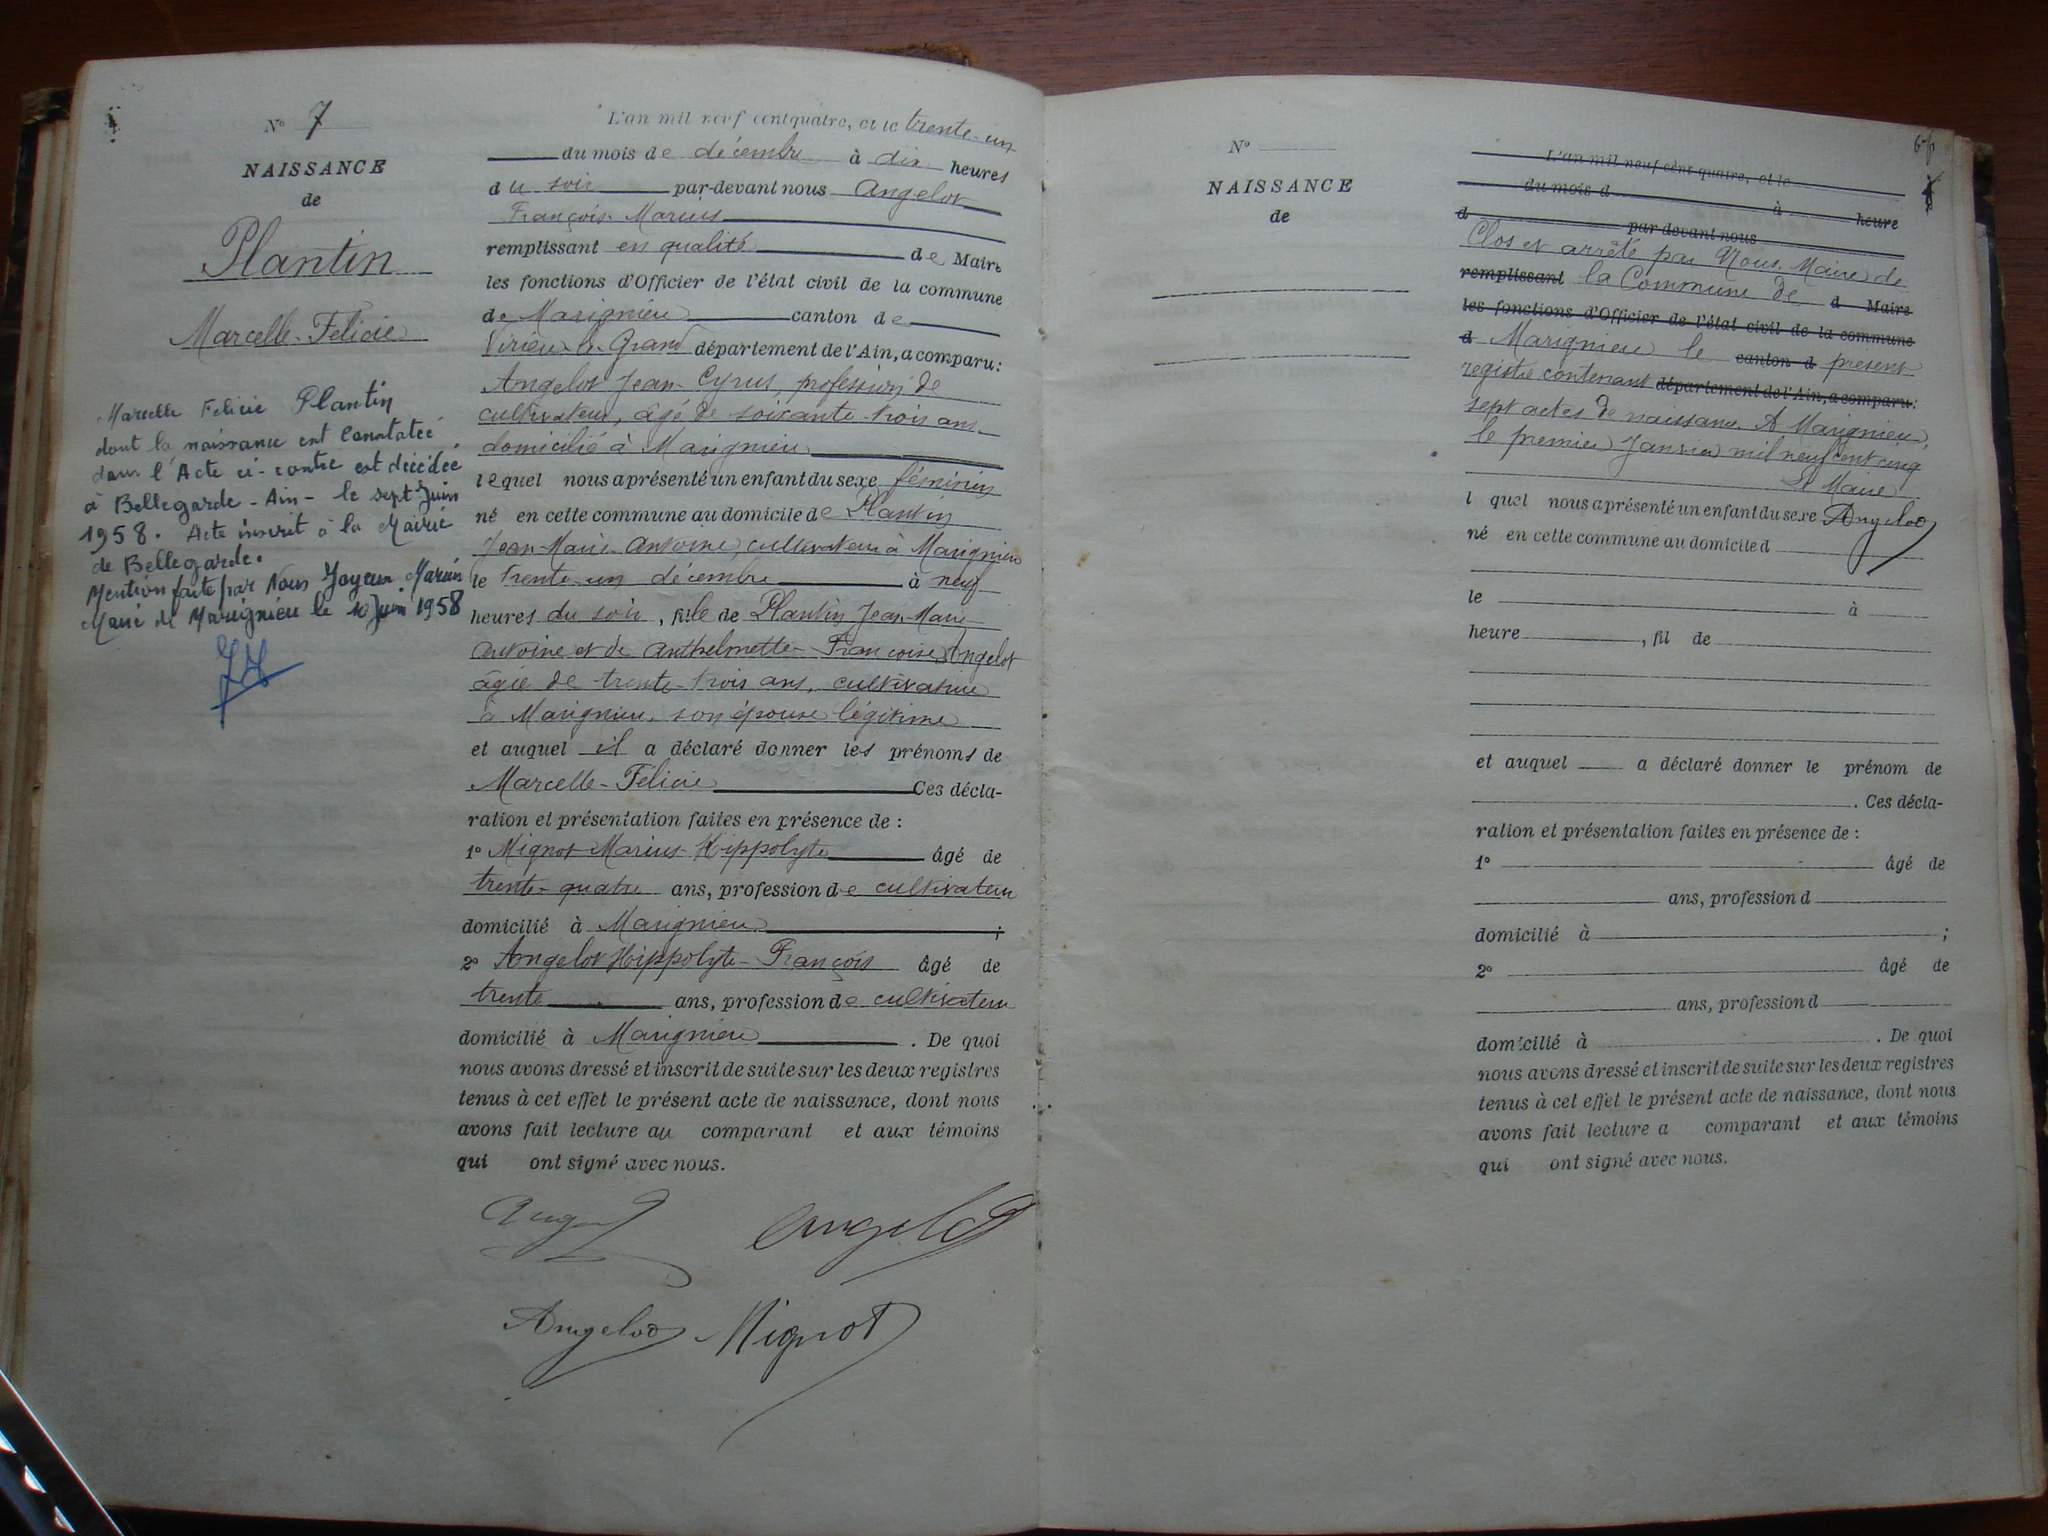 N° 7
NAISSANCE
de
Plantin
Marcelle-Felicie
Marcelle Felicie Plantin
dont la naissance est constatée
dans l'Acte ci-contre est décédée
à Bellegarde - Ain - le sept Juin
1958. Acte inscrit à la Mairie
de Bellegarde.
Mention faite par Nous Joyeux Marius
Maire de Marignieu le 10 Juin 1958
L'an mil neuf cent quatre, et le trente-un
du mois de décembre à dix heures
du soir par-devant nous Angelot
François-Marius
remplissant en qualité de Maire
les fonctions d'Officier de l'état civil de la commune
de Marignieu canton de
Virieu-le-Grand département de l'Ain, a comparu:
Angelot Jean-Cyrus, profession de
cultivateur, âgé de soixante-trois ans
domicilié à Marignieu
lequel nous a présenté un enfant du sexe féminin
né en cette commune au domicile de Plantin
Jean-Marie-Antoine, cultivateur à Marignieu
le trente-un décembre à neuf
heures du soir, fille de Plantin Jean-Marie-
Antoine et de Anthelmette-Françoise Angelot
âgée de trente-trois ans, cultivatrice
à Marignieu, son épouse légitime
et auquel il a déclaré donner les prénoms de
Marcelle-Félicie Ces décla-
ration et présentation faites en présence de :
1° Mignot Marius-Hippolyte âgé de
trente-quatre ans, profession de cultivateur
domicilié à Marignieu ;
2° Angelot Hippolyte-François âgé de
trente ans, profession de cultivateur
domicilié à Marignieu . De quoi
nous avons dressé et inscrit de suite sur les deux registres
tenus à cet effet le présent acte de naissance, dont nous
avons fait lecture au comparant et aux témoins
qui ont signé avec nous.
Angelot
Angelot Mignot
N°
NAISSANCE
de
L'an mil neuf cent quatre, et le
du mois d à heure
d par devant nous
Clos et arrêté par Nous, Maire de
remplissant la Commune de d Maire
les fonctions d'Officier de l'état civil de la commune
d Marignieu le canton d présent
registre contenant département de l'Ain, a comparu:
sept actes de naissance. A Marignieu,
le premier Janvier mil neuf cent cinq
Le Maire
l quel nous a présenté un enfant du sexe Angelot
né en cette commune au domicile d
le à
heure , fil de
et auquel a déclaré donner le prénom de
. Ces décla-
ration et présentation faites en présence de :
1° âgé de
ans, profession d
domicilié à ;
2° âgé de
ans, profession d
domicilié à . De quoi
nous avons dressé et inscrit de suite sur les deux registres
tenus à cet effet le présent acte de naissance, dont nous
avons fait lecture a comparant et aux témoins
qui ont signé avec nous.